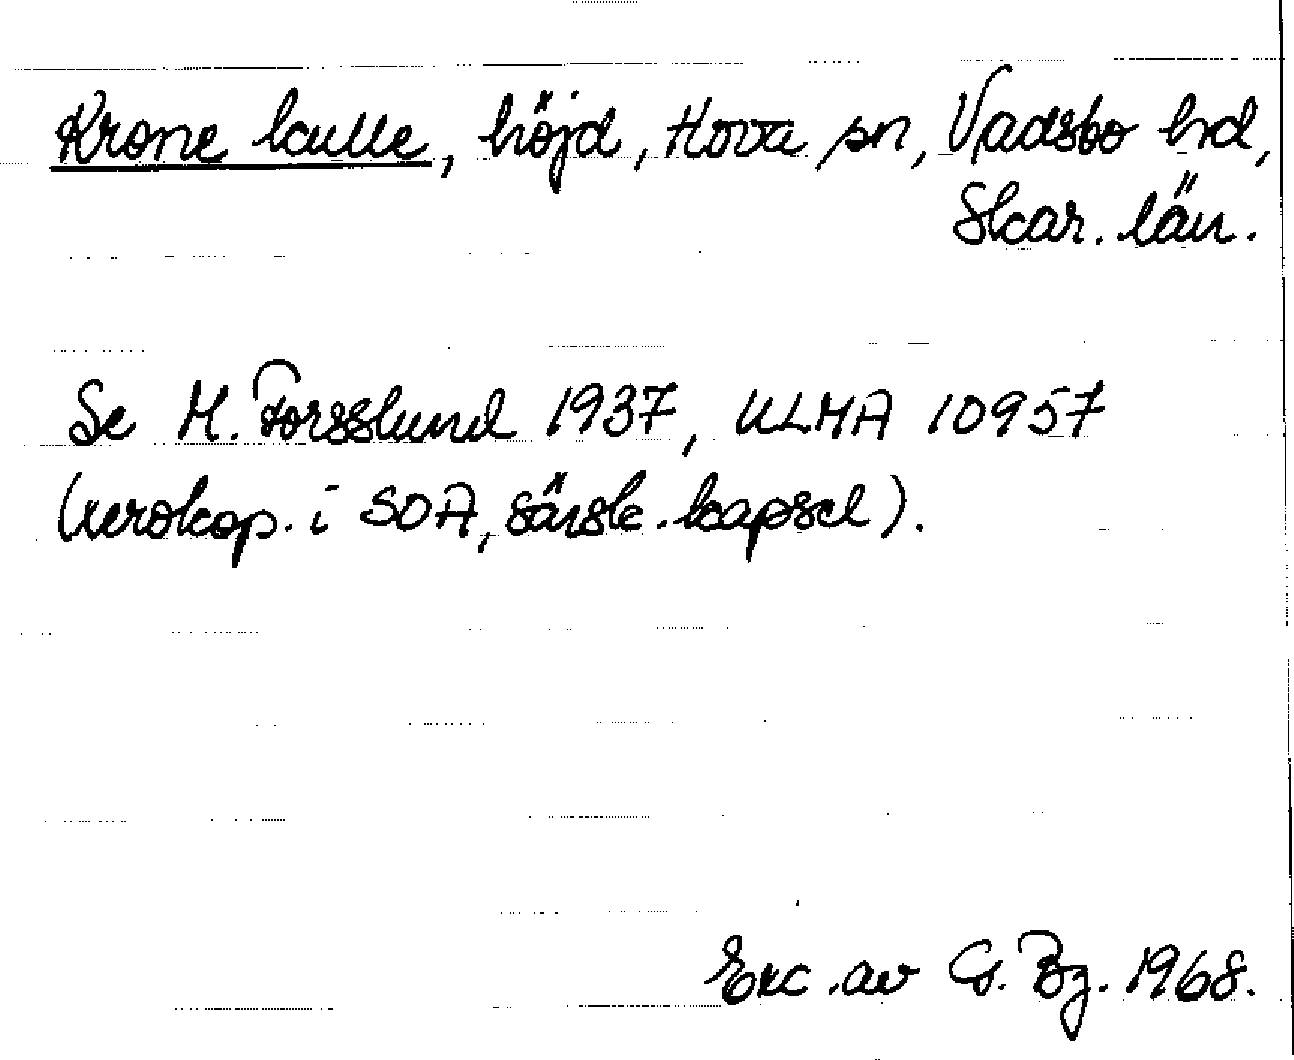 Krone kulle, höjd, Hova sn, Vadsbo hd,
Skar. län.
Se M. Forsslund 1937, ULMA 10957
(xerokop. i SOA, särsk. kapsel).
Exc. av G. Bg. 1968.